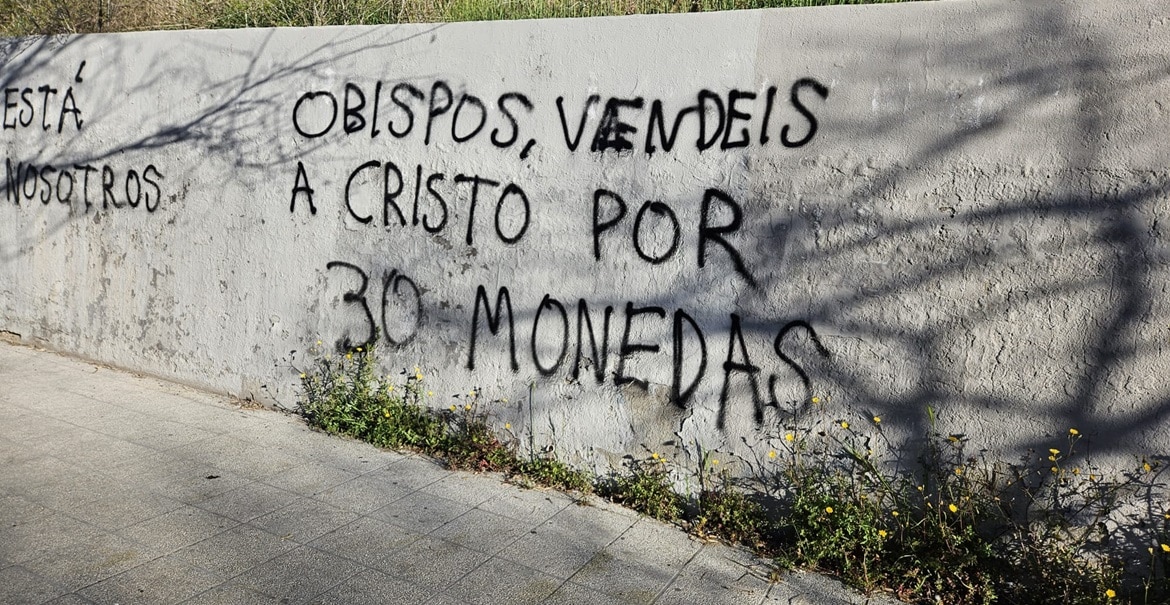 ESTÁ
NOSOTROS
OBISPOS, VENDEIS
A CRISTO POR
30 MONEDAS